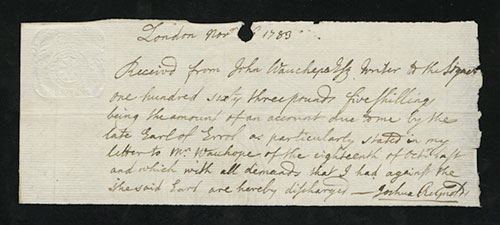 London Nov.r 1783
Received from John Wauchope Esq Writer to the Signet
one hundred sixty three pounds five shillings
being the amount of an account due to me by the
late Earl of Errol as particularly stated in my
letter to Mr Wauhope of the eighteenth of Octr. last
and which with all demands that I had against the
the said Earl are hereby discharged — Joshua Reynolds